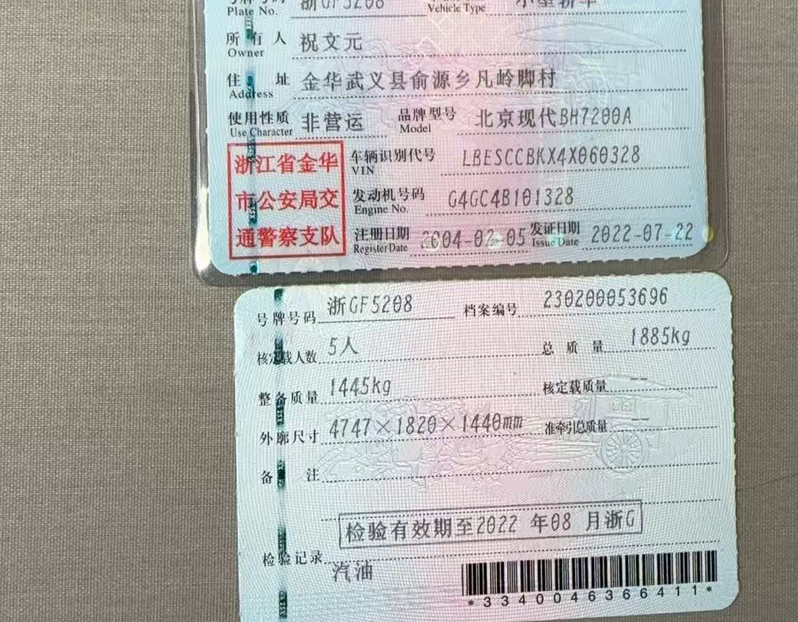 号牌号码 浙GF5208 小型轿车
Plate No. Vehicle Type
所有人 祝文元
Owner
住址 金华武义县俞源乡凡岭脚村
Address
使用性质 非营运 品牌型号 北京现代BH7200A
Use Character Model
浙江省金华
市公安局交
通警察支队
车辆识别代号 LBESCCBKX4X060328
VIN
发动机号码 G4GC4B101328
Engine No.
注册日期 2004-02-05 发证日期 2022-07-22
Register Date Issue Date
号牌号码 浙GF5208 档案编号 230200053696
核定载人数 5人 总质量 1885kg
整备质量 1445kg 核定载质量 --
外廓尺寸 4747×1820×1440mm 准牵引总质量 --
备注
检验有效期至2022年08月浙G
检验记录
汽油
*3340046366411*